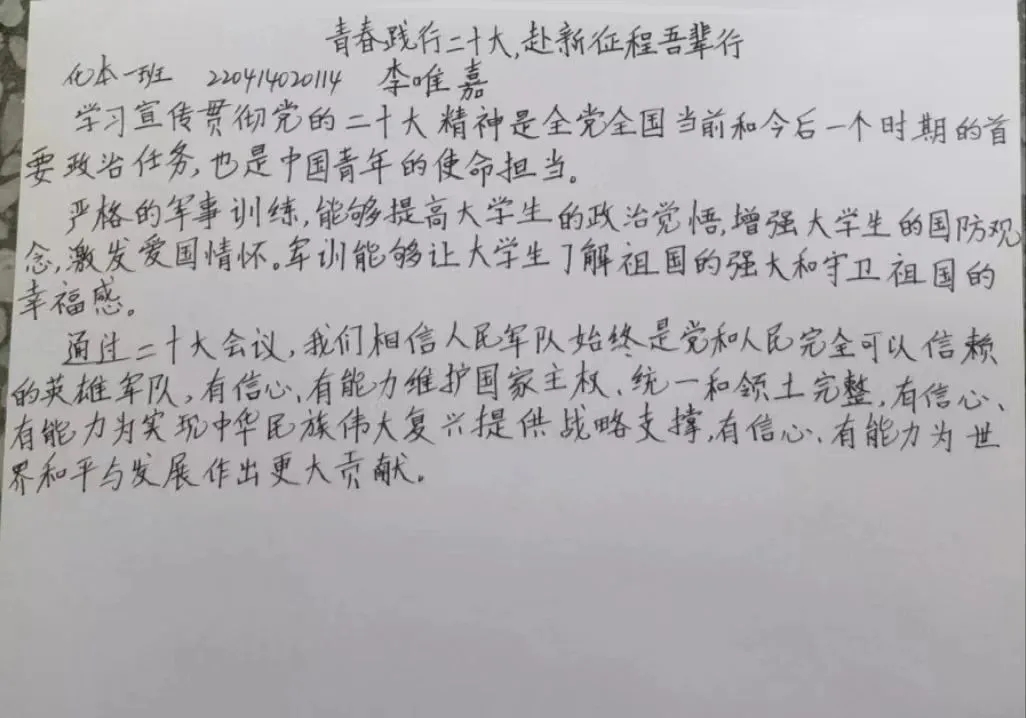 青春践行二十大,赴新征程吾辈行
化本一班 220414020114 李唯嘉
学习宣传贯彻党的二十大精神是全党全国当前和今后一个时期的首
要政治任务,也是中国青年的使命担当。
严格的军事训练,能够提高大学生的政治觉悟,增强大学生的国防观
念,激发爱国情怀。军训能够让大学生了解祖国的强大和守卫祖国的
幸福感。
通过二十大会议,我们相信人民军队始终是党和人民完全可以信赖
的英雄军队,有信心、有能力维护国家主权、统一和领土完整,有信心、
有能力为实现中华民族伟大复兴提供战略支撑,有信心、有能力为世
界和平与发展作出更大贡献。